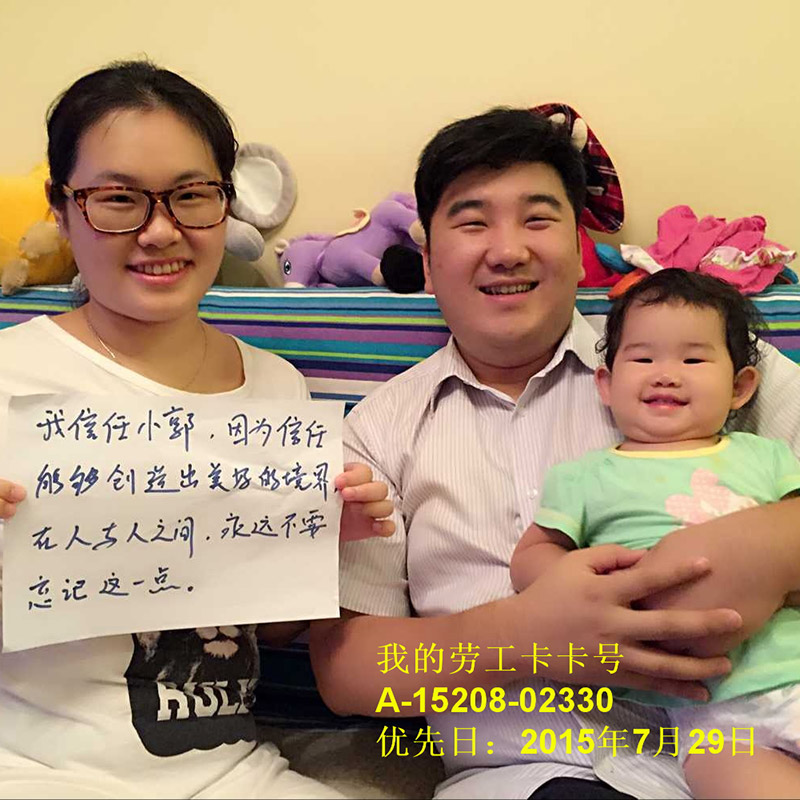 我信任小郭，因为信任
能够创造出美好的境界，
在人与人之间，永远不要
忘记这一点。
我的劳工卡卡号
A-15208-02330
优先日：2015年7月29日